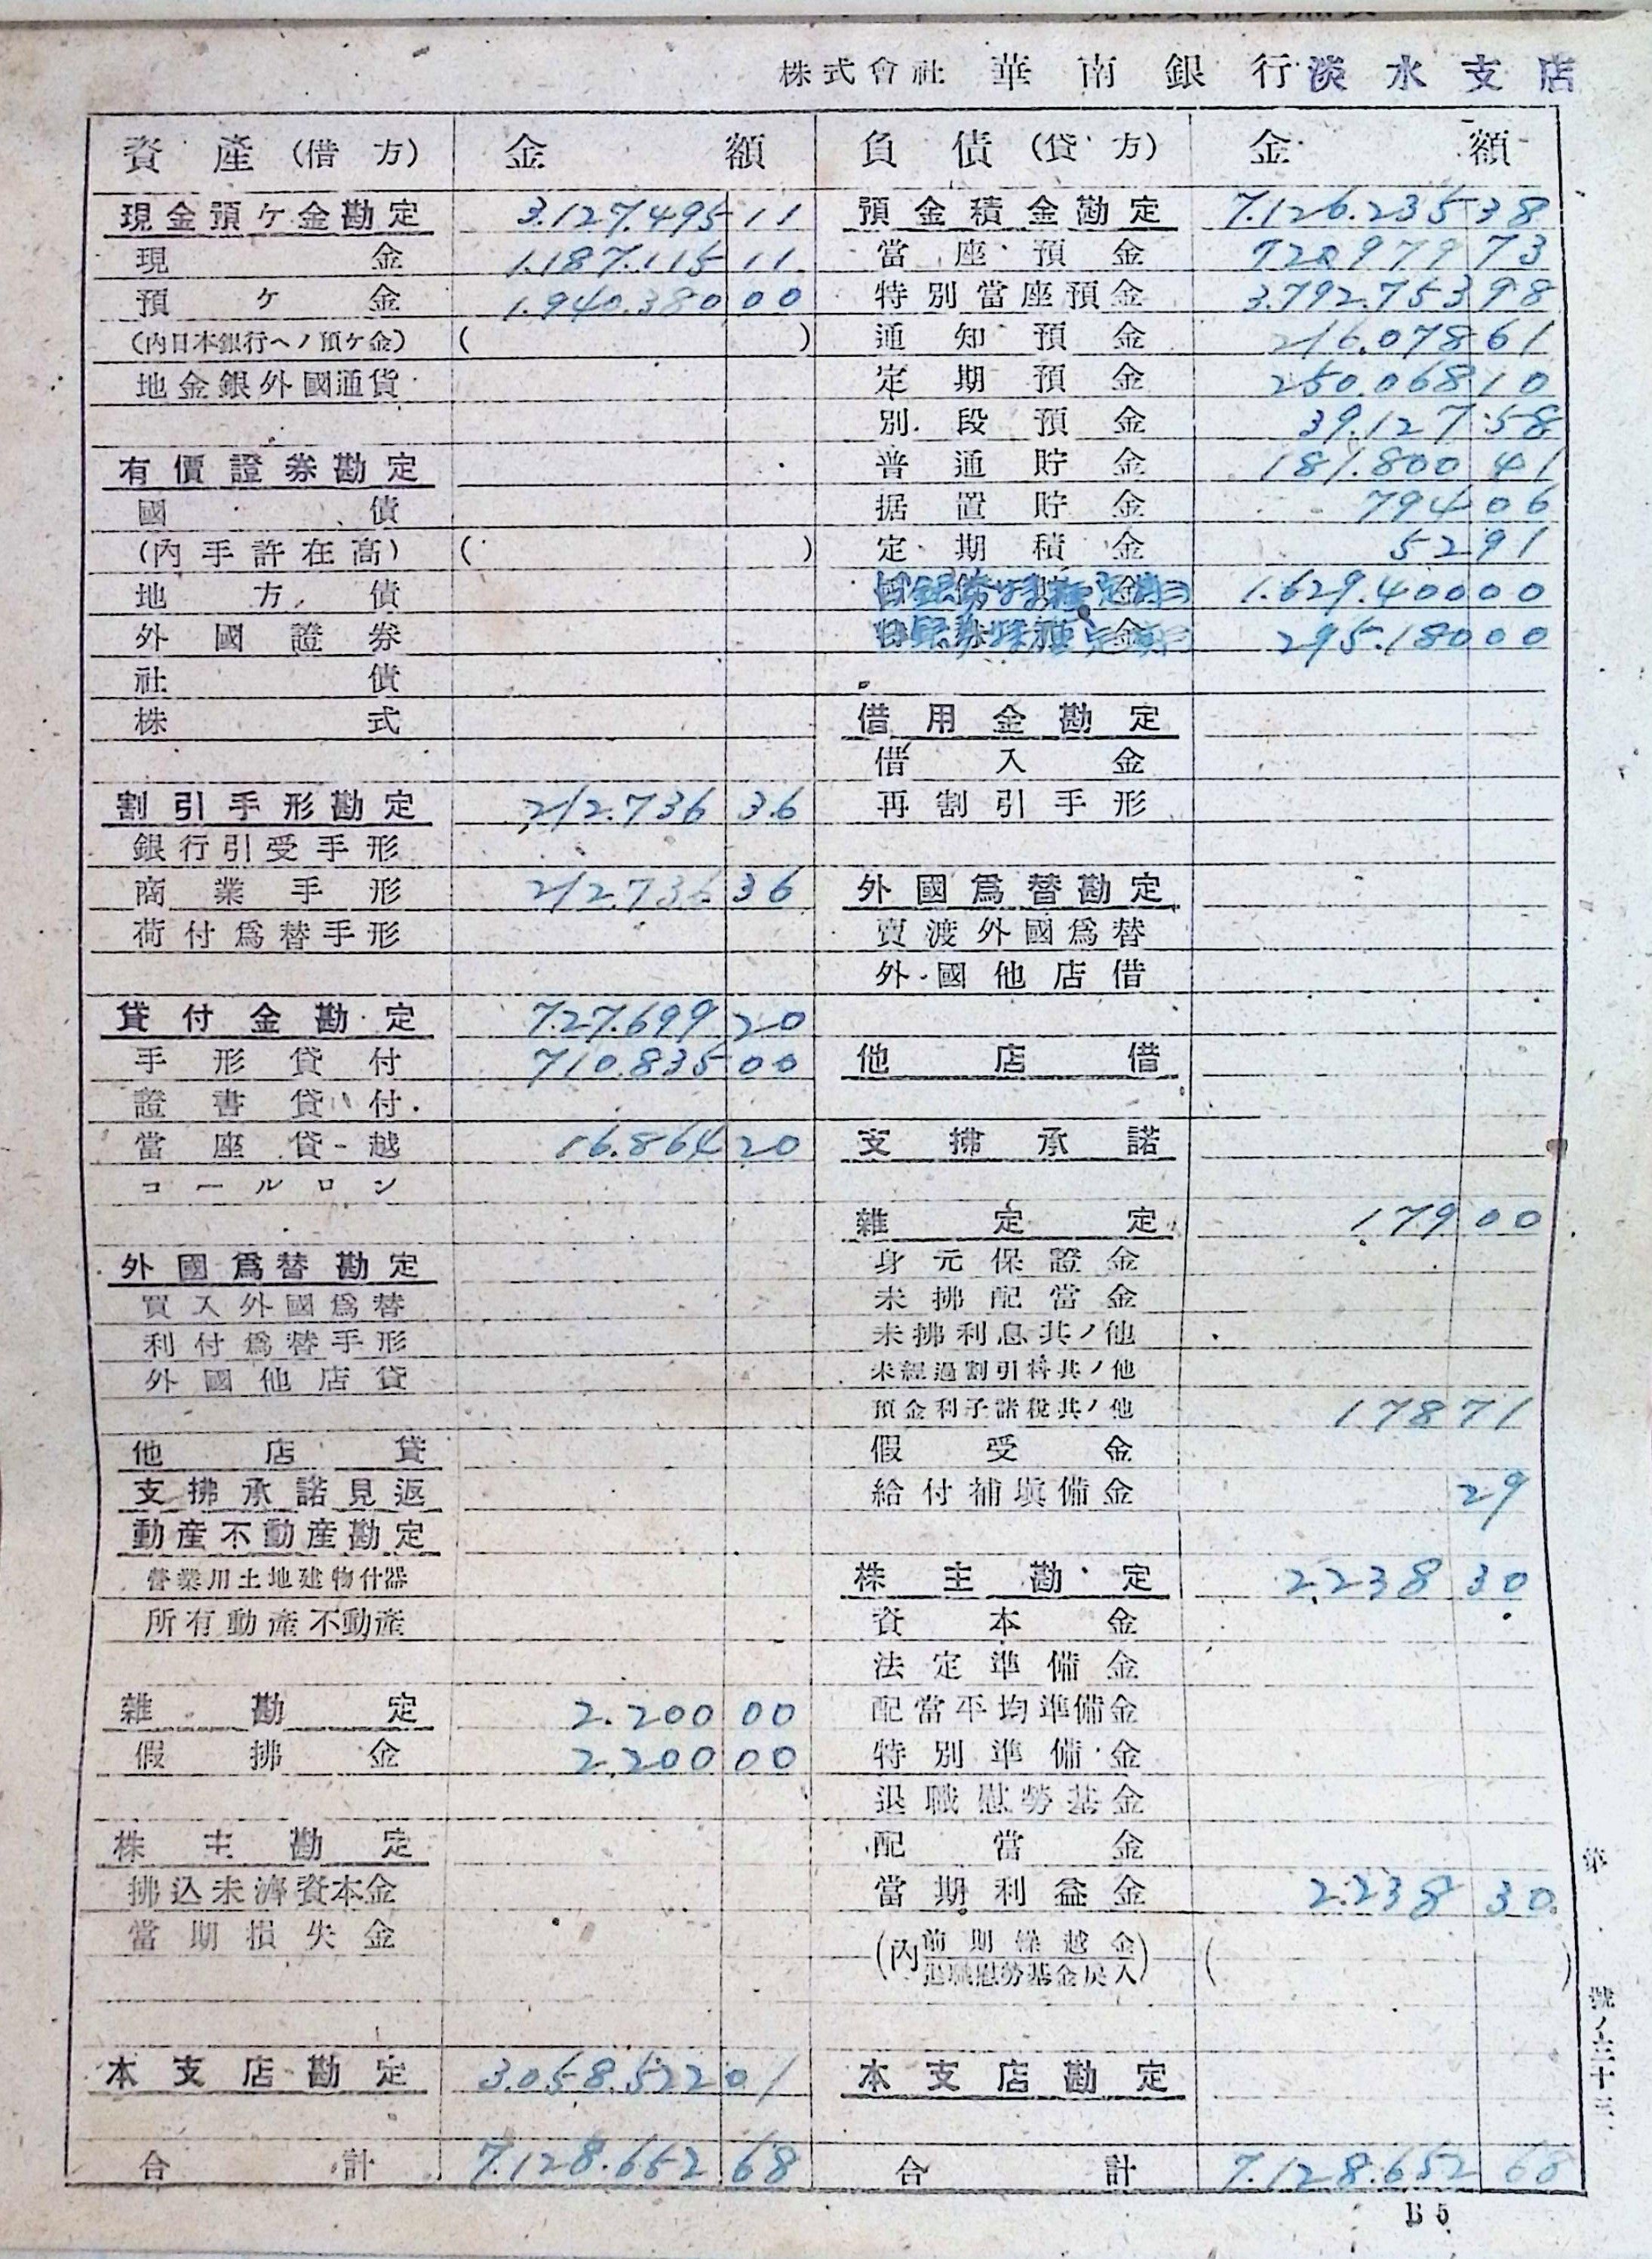 株式會社 華南銀行 淡水支店
資產(借方) 金額
現金預ケ金勘定 3.127.495 11
現金 1.187.115 11
預ケ金 1.940.380 00
(內日本銀行ヘノ預ケ金) ( )
地金銀外國通貨
有價證券勘定
國債
(內手許在高) ( )
地方債
外國證券
社債
株式
割引手形勘定 212.736 36
銀行引受手形
商業手形 212.736 36
荷付爲替手形
貸付金勘定 727.699 20
手形貸付 710.835 00
證書貸付
當座貸越 16.864 20
コールロン
外國爲替勘定
買入外國爲替
利付爲替手形
外國他店貸
他店貸
支拂承諾見返
動產不動產勘定
營業用土地建物什器
所有動產不動產
雜勘定 2.200 00
假拂金 2.200 00
株主勘定
拂込未濟資本金
當期損失金
本支店勘定 3.058.522 01
合計 7.128.652 68
負債(貸方) 金額
預金積金勘定 7.126.235 38
當座預金 720979 73
特別當座預金 3.792.753 98
通知預金 216.078 61
定期預金 250.068 10
別段預金 39.127 58
普通貯金 181.800 41
据置貯金 794 06
定期積金 52 91
1.629.400 00
295.180 00
借用金勘定
借入金
再割引手形
外國爲替勘定
賣渡外國爲替
外國他店借
他店借
支拂承諾
雜定定 179 00
身元保證金
未拂配當金
未拂利息其ノ他
未經過割引料其ノ他
預金利子諸稅其ノ他 178 71
假受金
給付補塡備金 29
株主勘定 2.238 30
資本金
法定準備金
配當平均準備金
特別準備金
退職慰勞基金
配當金
當期利益金 2.238 30
(內前期繰越金
退職慰勞基金戾入) ( )
本支店勘定
合計 7.128.652 68
第 號ノ三十三
B5